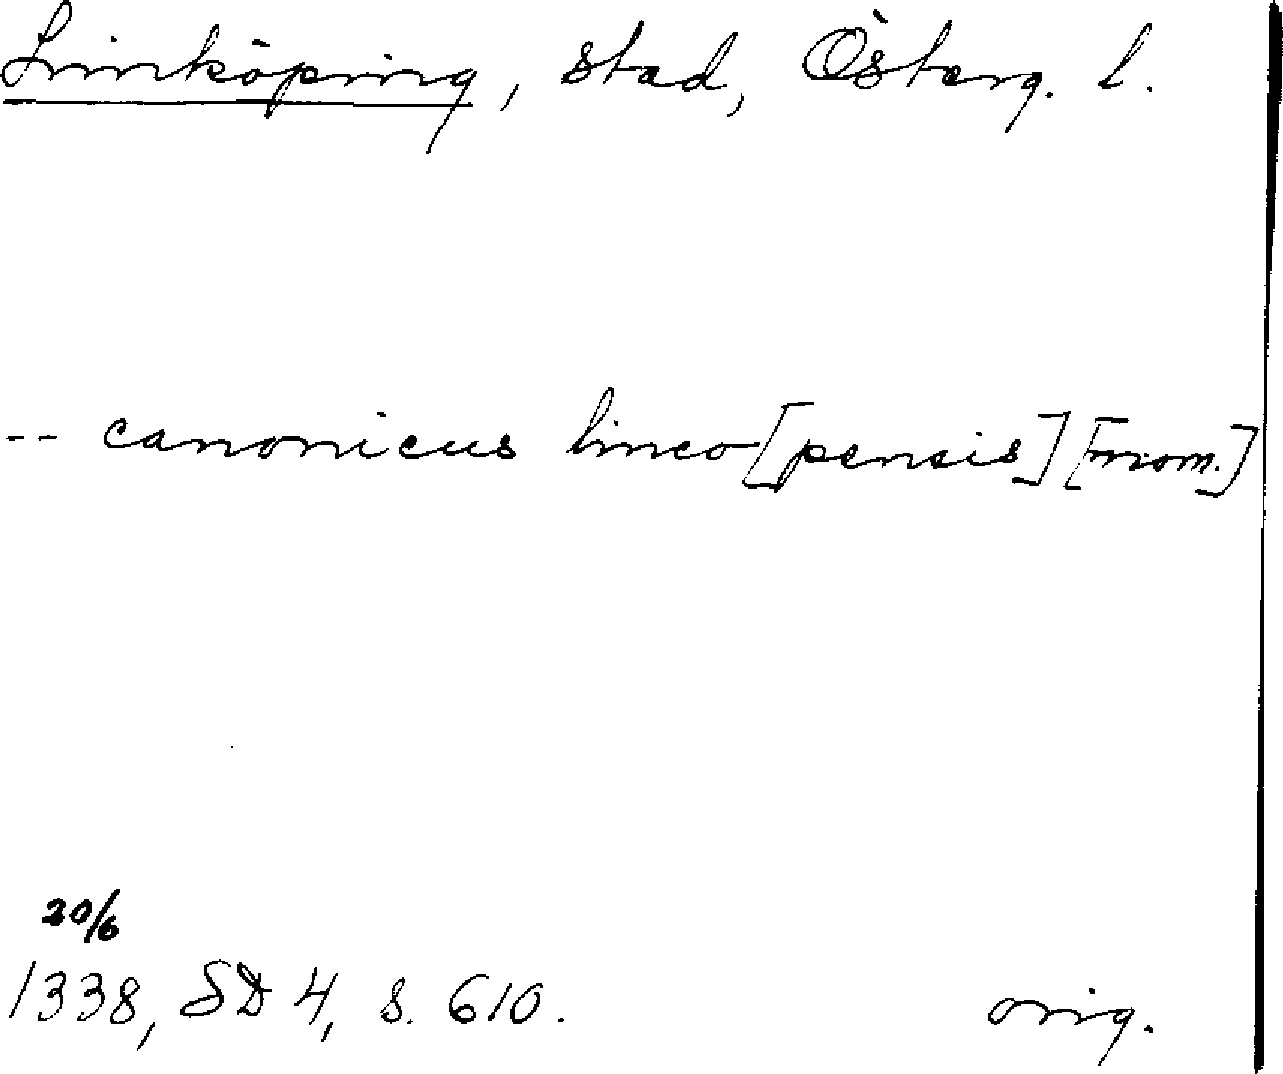 Linköping, stad, Österg. l.
-- canonicus linco[pensis] [nom.]
20/6
1338, SD 4, s. 610.
orig.